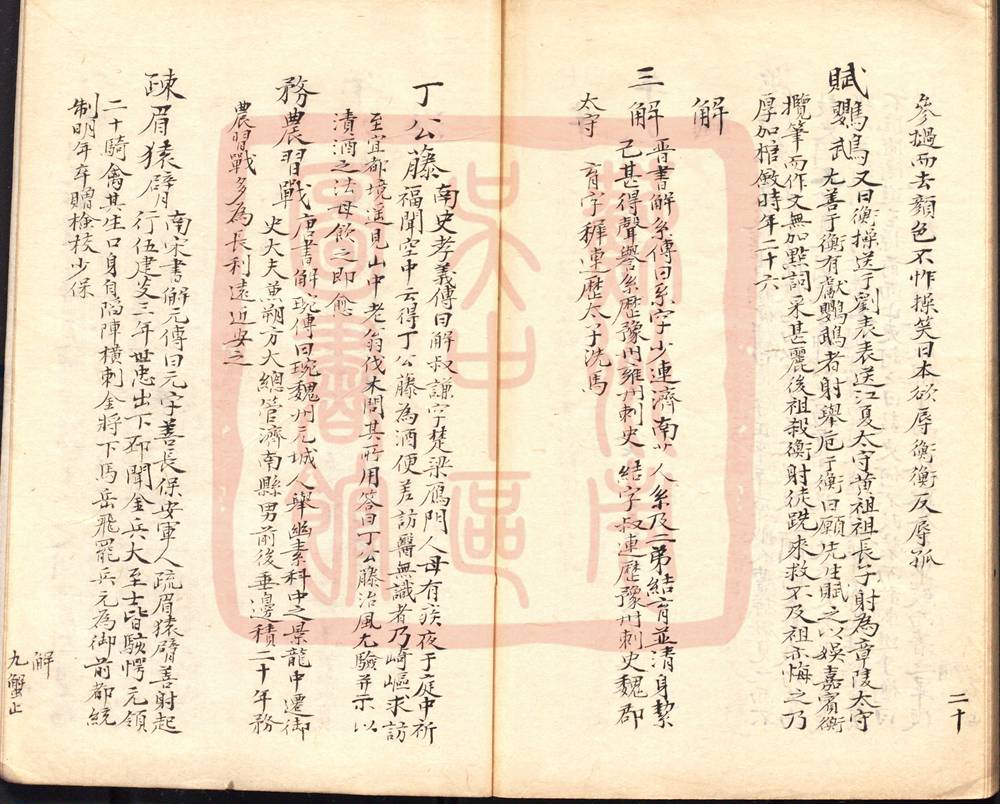 參撾而去顏色不怍操笑曰本欲辱衡衡反辱孤
賦鸚鵡又曰衡操送于劉表表送江夏太守黃祖祖長子射為章陵太守
尤善于衡有獻鸚鵡者射舉巵于衡曰願先生賦之以娛嘉賓衡
攬筆而作文無加點詞采甚麗後祖殺衡射徒跣來救不及祖亦悔之乃
厚加棺斂時年二十六
解
三解晋書解系傳曰系字少連濟南人系及二弟結育並清身絜
己甚得聲譽系歷豫州雍州刺史 結字叔連歷豫州刺史魏郡
太守 育字穉連歷太子洗馬
丁公藤南史孝義傳曰解叔謙字楚梁鴈門人母有疾夜于庭中祈
福聞空中云得丁公藤為酒便差訪醫無識者乃崎嶇求訪
至宜都境遥見山中老翁伐木問其所用答曰丁公藤治風尤驗并示以
漬酒之法母飲之即愈
務農習戰唐書解琬傳曰琬魏州元城人舉幽素科中之景龍中遷御
史大夫兼朔方大總管濟南縣男前後垂邊積二十年務
農習戰多為長利遠近安之
疎眉猿臂南宋書解元傳曰元字善長保安軍人疏眉猿臂善射起
行伍建炎三年世忠出下邳聞金兵大至士皆駭愕元領
二十騎禽其生口身自陷陣橫刺金將下馬岳飛罷兵元為御前都統
制明年卒贈檢校少保
二十
解
九蟹止